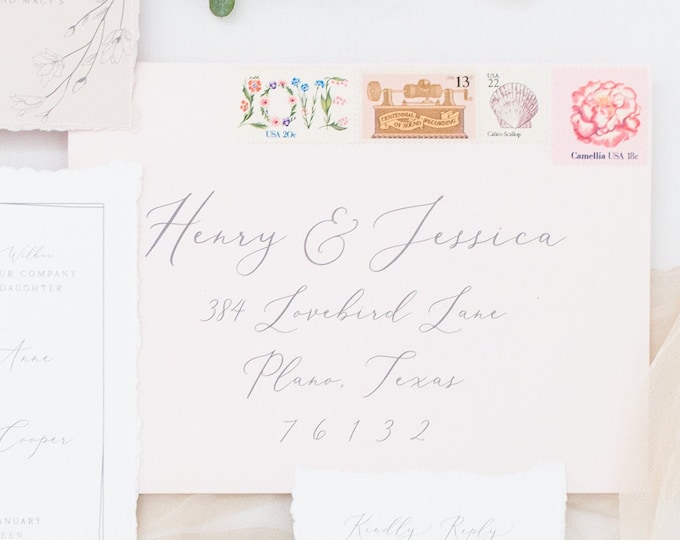 ND MACY'S
LOVE
USA 20c
13
CENTENNIAL OF SOUND RECORDING
USA
22
Calico Scallop
Camellia USA 18c
Henry & Jessica
384 Lovebird Lane
Plano, Texas
76132
Wilbur
UR COMPANY
DAUGHTER
Anne
Cooper
ANUARY
EEN
Kindly Reply